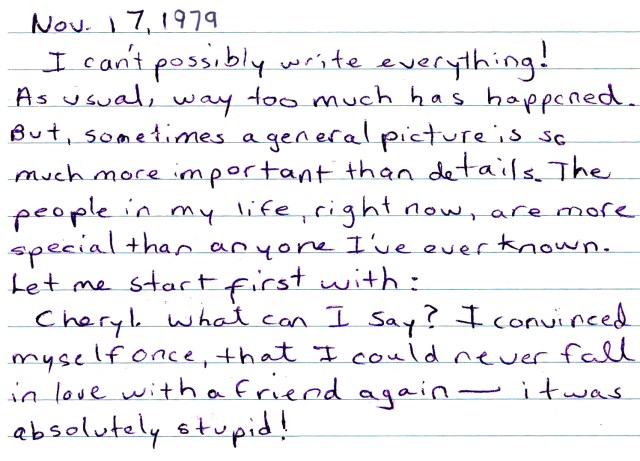 Nov. 17, 1979
I can't possibly write everything!
As usual, way too much has happened.
But, sometimes a general picture is so
much more important than details. The
people in my life, right now, are more
special than anyone I've ever known.
Let me start first with:
Cheryl. What can I say? I convinced
myself once, that I could never fall
in love with a friend again — it was
absolutely stupid!